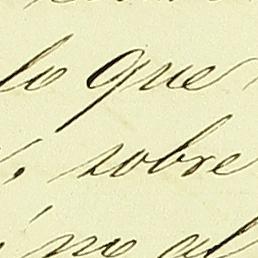 lo que
, sobre
no al